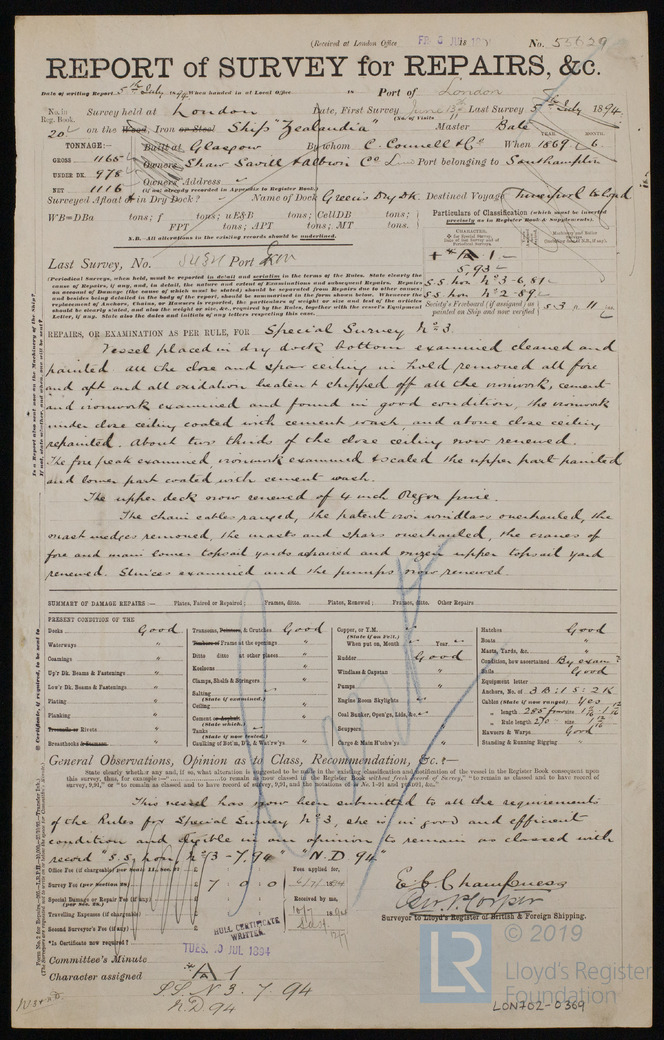 (Received at London Office
No. 55629
REPORT of SURVEY for REPAIRS, &c.
Date of writing Report 5th July 1894 When handed in at Local Office Port of London
No. in Reg. Book. Survey held at London Date, First Survey June 13th Last Survey 5th July 1894
(No. of Visits 11)
20 on the Wood, Iron or Steel Ship "Zealandia" Master Bate
TONNAGE:— Built at Glasgow By whom C. Connell & Co When 1869 6
YEAR. MONTH.
GROSS 1165 Owners Shaw Savill & Albion Co Lim Port belonging to Southampton
UNDER DK. 978 Owners' Address
NET 1116 (if not already recorded in Appendix to Register Book.)
Surveyed Afloat or in Dry Dock? Name of Dock Green's Dry Dk Destined Voyage
WB=DBa tons; f tons; uE&B tons; CellDB tons;
FPT tons; APT tons; MT tons.
N.B. All alterations in the existing records should be underlined.
Particulars of Classification (which must be inserted precisely as in Register Book & Supplements).
Last Survey, No. Port
+ A 1 -
5,93
S.S. Lon No 3-6,81
S.S. Lon No 2-89
Society's Freeboard (if assigned) as painted on Ship and now verified
(Periodical Surveys, when held, must be reported in detail and seriatim in the terms of the Rules. State clearly the cause of Repairs, if any, and, in detail, the nature and extent of Examinations and subsequent Repairs. Repairs on account of Damage (the cause of which must be stated) should be separated from Repairs due to other causes; and besides being detailed in the body of the report, should be summarized in the form shown below. Whenever the replacement of Anchors, Chains, or Hawsers is reported, the particulars of weight or size and test of the articles should be clearly stated, and also the weight or size, &c., required by the Rules, together with the vessel's Equipment Letter, if any. State also the dates and initials of any letters respecting this case.
REPAIRS, OR EXAMINATION AS PER RULE, FOR Special Survey No 3.
Vessel placed in dry dock bottom examined cleaned and
painted all the close and spar ceiling in hold removed all fore
and aft and all oxidation beaten & chipped off all the ironwork, cement
and ironwork examined and found in good condition, the ironwork
under close ceiling coated with cement wash, and above close ceiling
repainted. About two thirds of the close ceiling now renewed.
The fore peak examined, ironwork examined & scaled the upper part painted
and lower part coated with cement wash.
The upper deck now renewed of 4 inch Oregon pine.
The chain cables ranged, the patent iron windlass overhauled, the
mast wedges removed, the masts and spars overhauled, the cranes of
fore and main lower topsail yards repaired and mizen upper topsail yard
renewed. Sluices examined and the pumps now renewed
SUMMARY OF DAMAGE REPAIRS:— Plates, Faired or Repaired; Frames, ditto. Plates, Renewed; Frames, ditto, Other Repairs
PRESENT CONDITION OF THE
Decks Good
Waterways "
Coamings "
Up'r Dk. Beams & Fastenings "
Low'r Dk. Beams & Fastenings "
Plating "
Planking "
Treenails or Rivets "
Breasthooks & Stemson "
Transoms, Pointers, & Crutches Good
Timbers or Frame at the openings "
Ditto ditto at other places "
Keelsons "
Clamps, Shelfs & Stringers "
Salting (State if examined).
Ceiling "
Cement or Asphalt (State which.) "
Tanks (State if now tested.)
Caulking of Bot'm, D'k, & Wat'rw'ys "
Copper, or Y.M. (State if on Felt.)
When put on, Month Year
Rudder Good
Windlass & Capstan "
Pumps "
Engine Room Skylights
Coal Bunker, Open'gs, Lids, &c.
Scuppers "
Cargo & Main H'tchw'ys "
Hatches Good
Boats "
Masts, Yards, &c. "
Condition, how ascertained By exam
Sails Good
Equipment letter
Anchors, No. of 3B; 1S; 2K
Cables (State if now ranged) Yes
" length 285
" Rule length 270 size
Hawsers & Warps Good
Standing & Running Rigging "
General Observations, Opinion as to Class, Recommendation, &c.:—
State clearly whether any and, if so, what alteration is suggested to be made in the existing classification and notification of the vessel in the Register Book consequent upon
This vessel has now been submitted to all the requirements
of the Rules for Special Survey No 3, she is in good and efficient
condition and eligible in our opinion to remain as classed with
record "S.S. Lon, No 3-7.94" "N.D 94"
Office Fee (if chargeable) per Sec. 11, Sec. 27. £
Survey Fee (per Section 28) £ 7 : 0 : 0
Special Damage or Repair Fee (if any) (per Sec. 28.) £
Travelling Expenses (if chargeable) £
Second Surveyor's Fee (if any) £
*Is Certificate now required?
Fees applied for,
Received by me,
Surveyor to Lloyd's Register of British & Foreign Shipping.
HULL CERTIFICATE WRITTEN.
Committee's Minute
TUES. 10 JUL 1894
Character assigned + A 1
S.S. No 3. 7. 94
N.D 94
© 2019
LR
Lloyd's Register
Foundation
LON702-0369